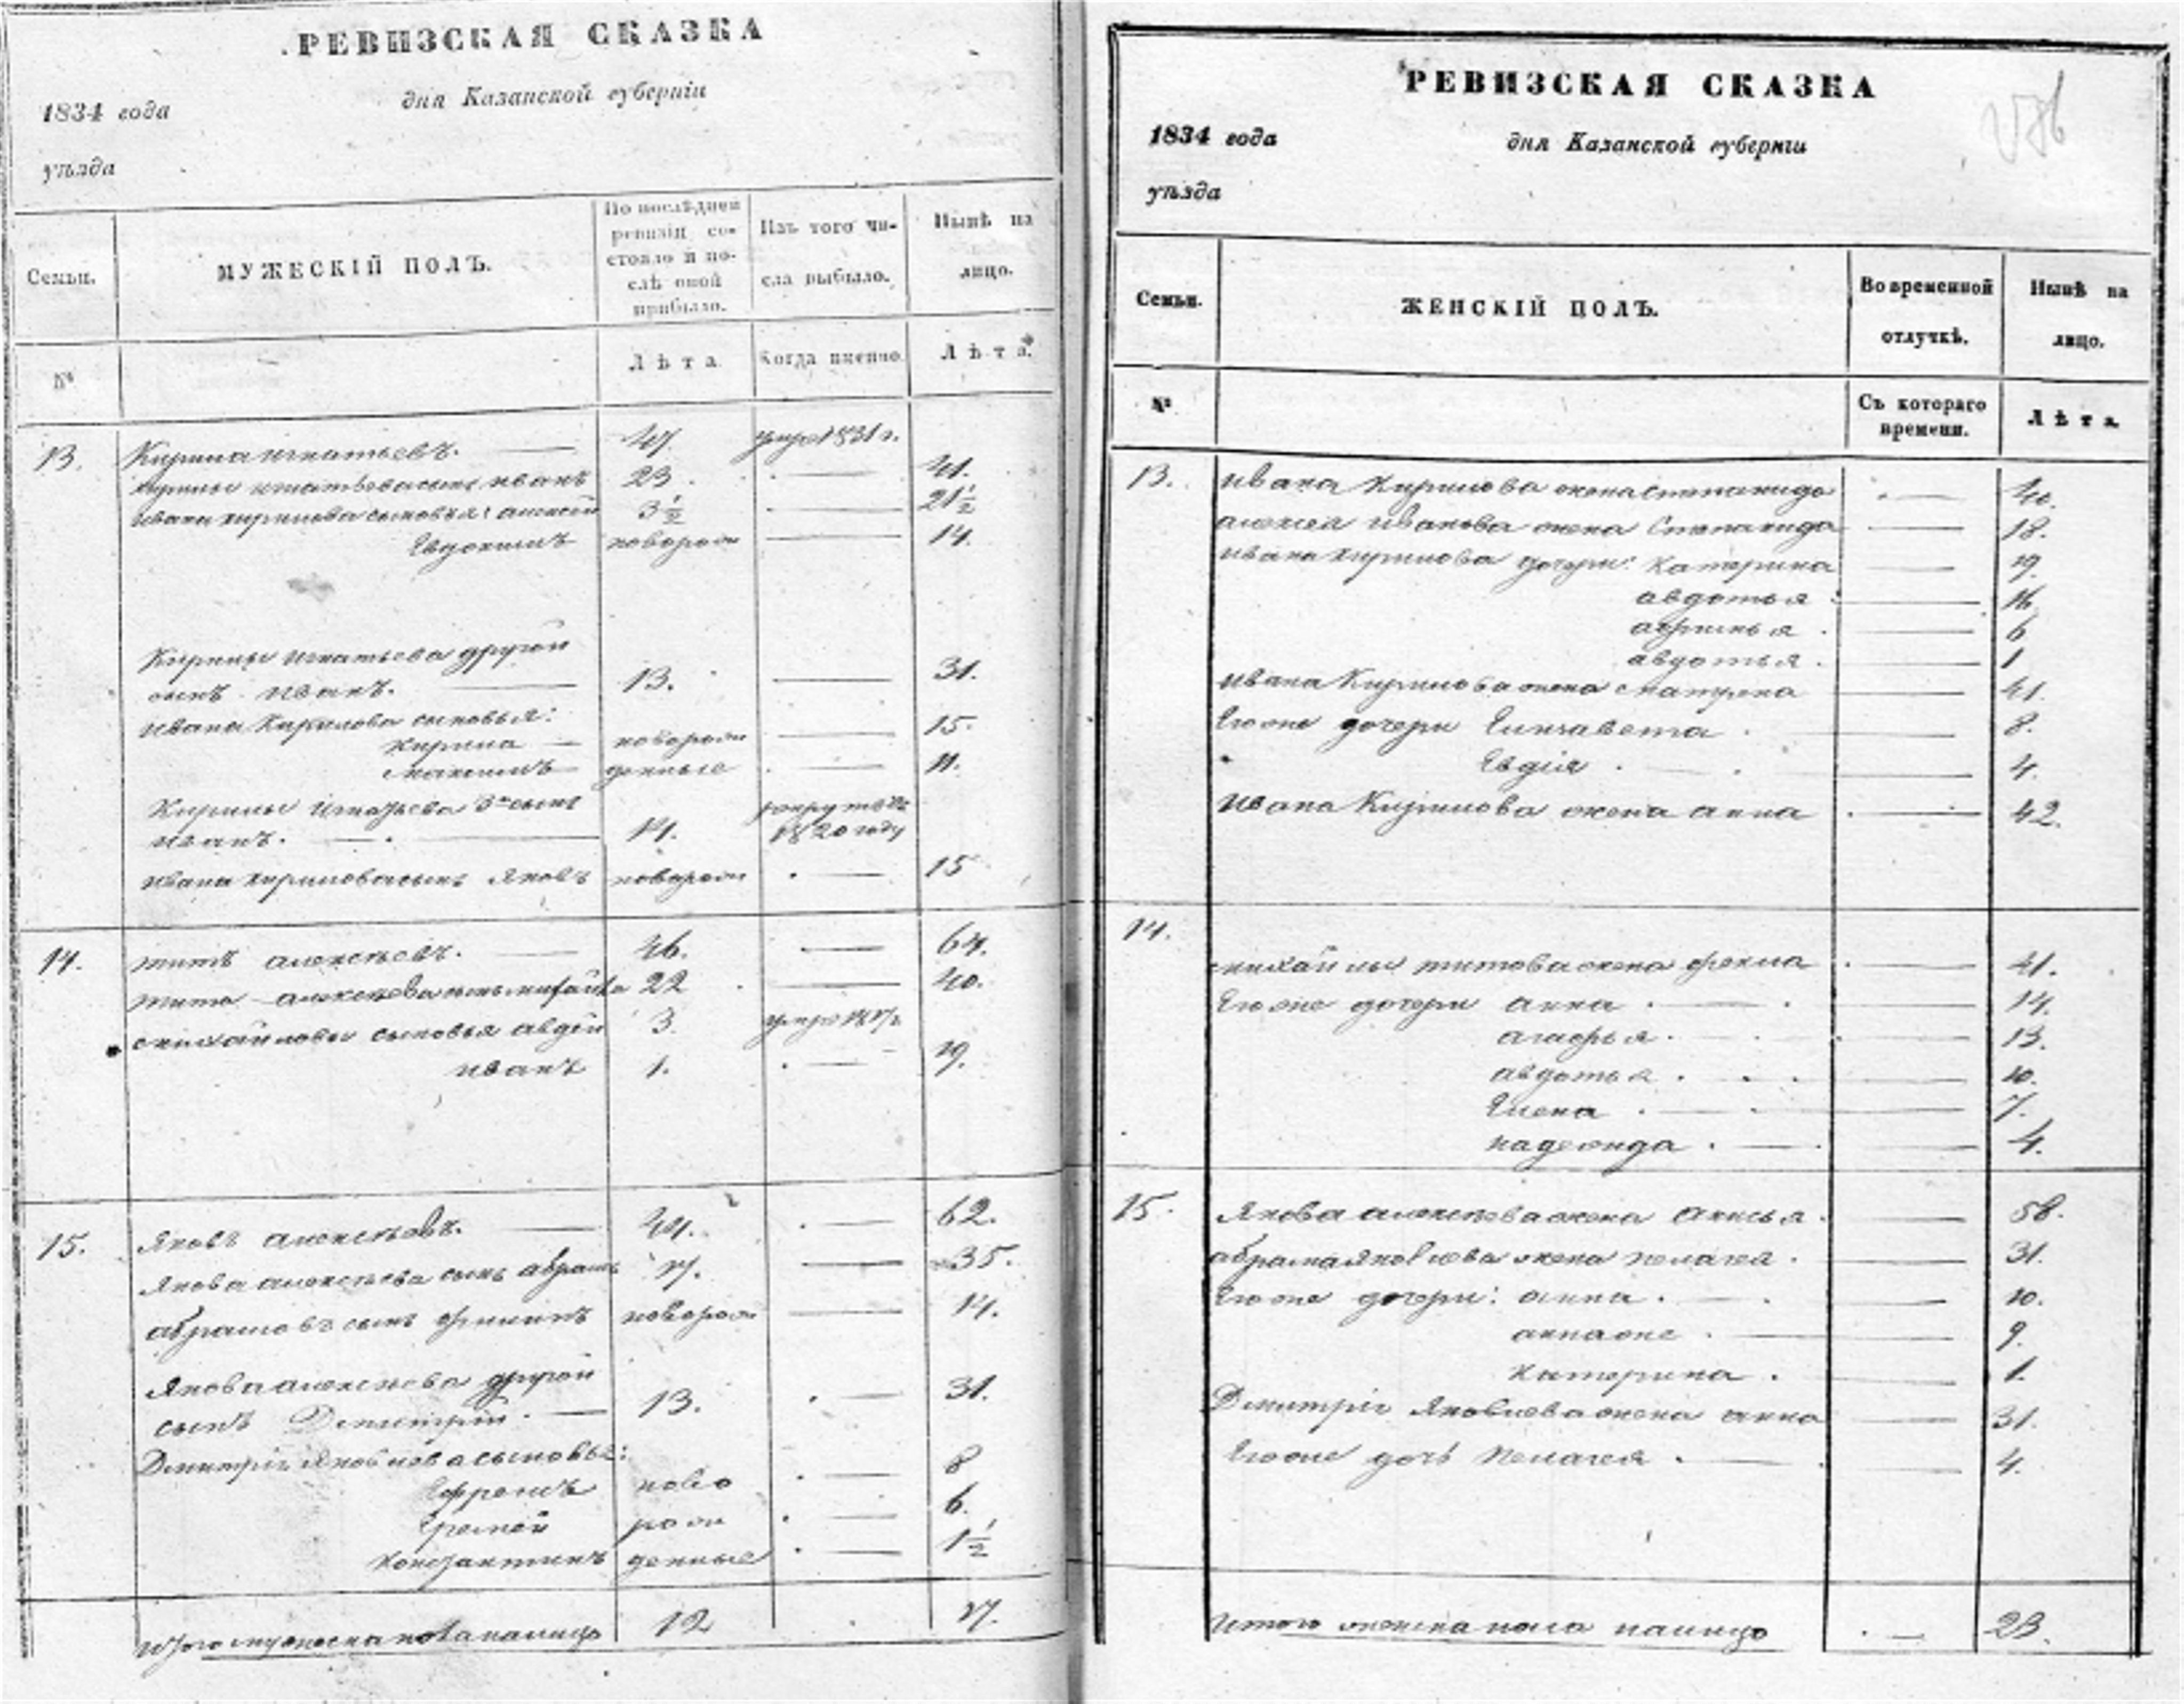 РЕВИЗСКАЯ СКАЗКА
1834 года
дня Казанской губерніи
уѣзда
Семьи.
МУЖЕСКІЙ ПОЛЪ.
По послѣдней
ревизіи со-
стояло и по-
слѣ оной
прибыло.
Изъ того чи-
сла выбыло.
Нынѣ на
лицо.
№
Лѣта
Когда именно
Лѣта.
13. Кирила Игнатьевъ. 47. умре 1831 г.
Кирилы Игнатьева сынъ Иванъ 23 41.
Ивана Кирилова сыновья: Алексей 3½ 21½
Евдокимъ новорож 14.
Кирилы Игнатьева другой
сынъ Иванъ. 13. 31.
Ивана Кирилова сыновья:
Кирила новорож 15.
Максимъ денные 11.
Кирилы Игнатьева 3й сынъ
Иванъ. 14. 1820 году
Ивана Кирилова сынъ Яковъ новорож 15
14. Титъ Алексѣевъ. 46. 64.
Тита Алексѣева сынъ Михайла 22 40.
Михайловы сыновья Авдей 3. умре
Иванъ 1. 19.
15. Яковъ Алексѣевъ. 44. 62.
Якова Алексѣева сынъ Абрамъ 17. 35.
Абрамовъ сынъ Филипъ новорож 14.
Якова Алексѣева другой
сынъ Дмитрій. 13. 31.
Дмитрія Яковлева сыновья:
Ефремъ ново 8
Еремей рож 6.
Константинъ денные 1½
Итого мужеска пола налицо 12 17.
РЕВИЗСКАЯ СКАЗКА
1834 года
дня Казанской губерніи
уѣзда
Семьи.
ЖЕНСКІЙ ПОЛЪ.
Во временной
отлучкѣ.
Нынѣ на
лицо.
№
Съ котораго
времени.
Лѣта
13. Ивана Кирилова жена Степанида 40.
Алексея Иванова жена Степанида 18.
Ивана Кирилова дочери: Катерина 19.
Авдотья 16.
6
Авдотья 1
Ивана Кирилова жена Матрена 41.
Его же дочери Елизавета 8.
Евдія 4.
Ивана Кирилова жена Анна 42.
14.
Михайлы Титова жена Фекла 41.
Его же дочери Анна 14.
Агафья 13.
Авдотья 10.
Елена 7.
Надежда 4.
15. Якова Алексѣева жена Анисья 58.
Абрама Яковлева жена Пелагея 31.
Его же дочери: Анна 10.
Анна же 9.
Катерина 1.
Дмитрія Яковлева жена Анна 31.
Его же дочь Пелагея 4.
Итого женска пола налицо 23.